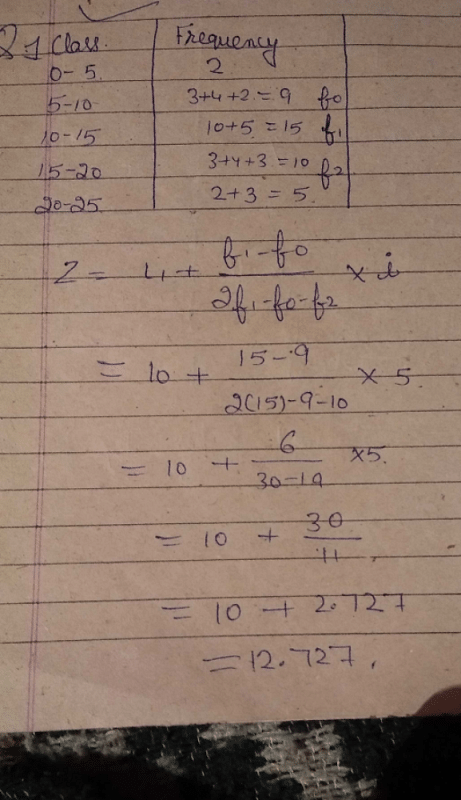 Q1 Class Frequency
0-5 2
5-10 3+4+2 = 9 f0
10-15 10+5 = 15 f1
15-20 3+4+3 = 10 f2
20-25 2+3 = 5
Z = L1 + f1-f0 / 2f1-f0-f2 × i
= 10 + 15-9 / 2(15)-9-10 × 5
= 10 + 6 / 30-19 ×5
= 10 + 30 / 11
= 10 + 2.727
= 12.727.